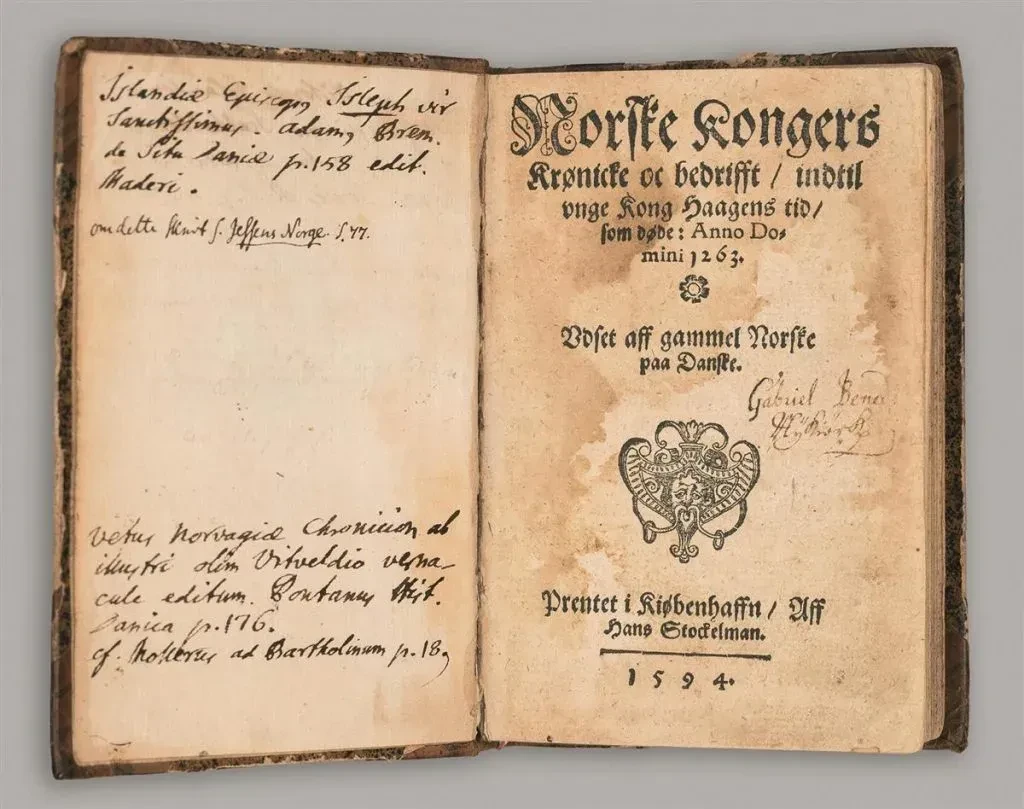 Islandiæ Episcopq Isleph vir
Sanctissimus. adamq Brem.
de Situ Daniæ p.158 edit.
Maderi.
om dette skrivt s. Jessens Norge. S. 77.
vetus Norvagiæ Chronicion ab
illustri olim Vitveldio verna-
cule editum. Pontanus Hist.
Danica p.176.
cf. Mollerus ad Bartholinum p.18,
Norske Kongers
Krønicke oc bedrifft / indtil
vnge Kong Haagens tid /
som døde: Anno Do-
mini 1263.
Vdset aff gammel Norske
paa Danske.
Gabriel
Prentet i Kiøbenhaffn / Aff
Hans Stockelman.
1594.